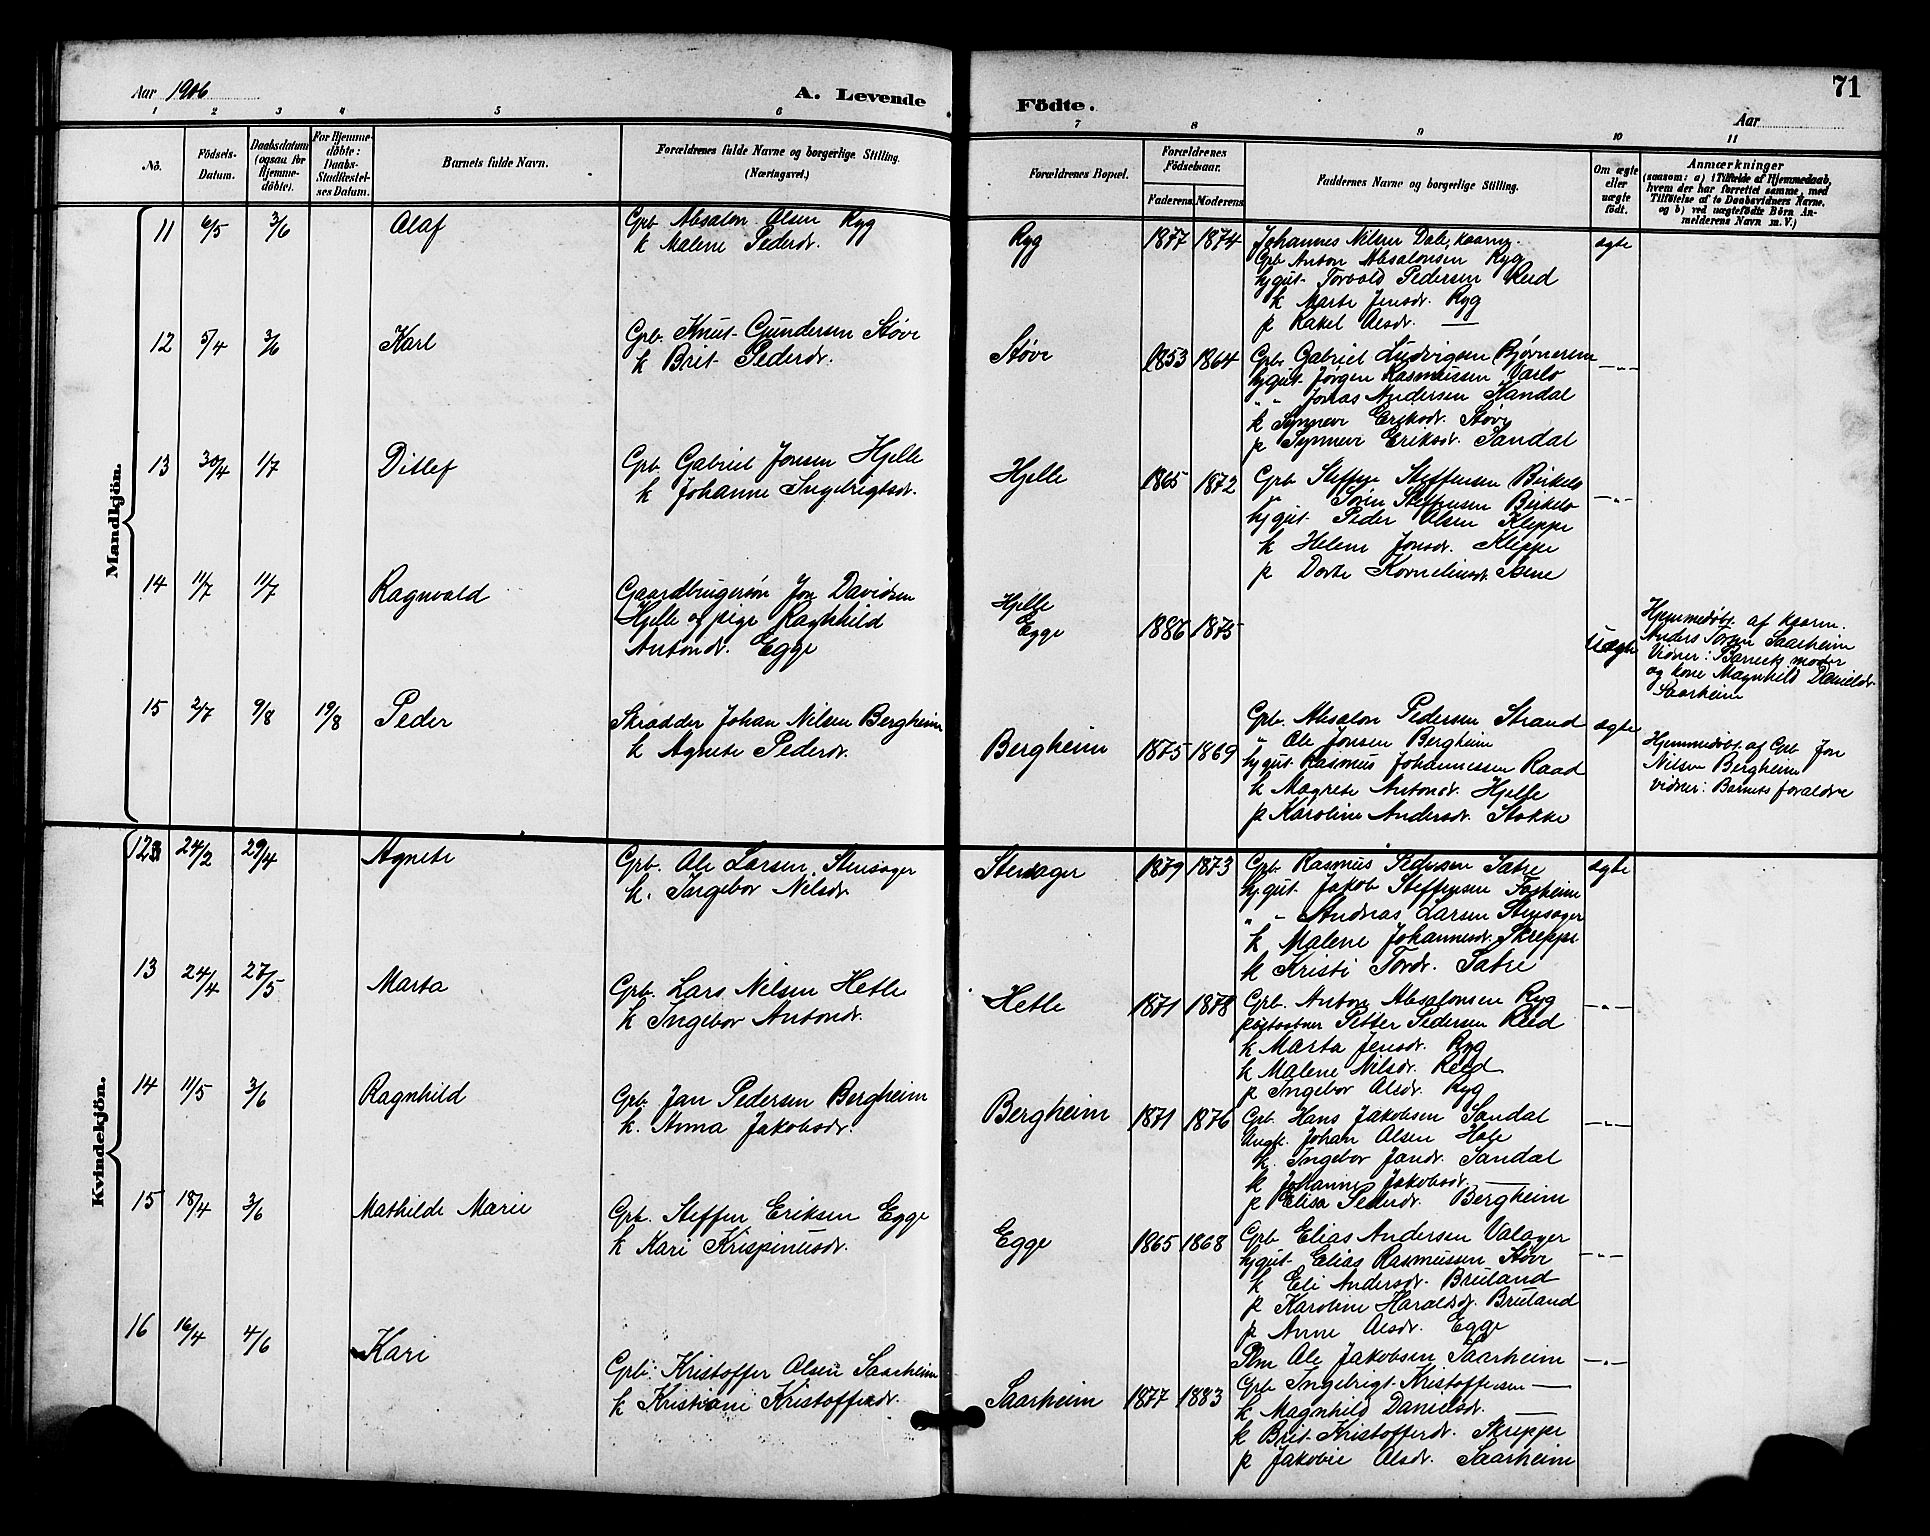 71
Aar 1906
A. Levende
Födte.
Aar
1 2 3 4 5 6 7 8 9 10 11
No.
Födsels-Datum.
Daabsdatum (ogsaa for Hjemmedöbte).
For Hjemmedöbte: Daabs-Stadfæstelses Datum.
Barnets fulde Navn.
Forældrenes fulde Navne og borgerlige Stilling. (Næringsvei.)
Forældrenes Bopæl.
Forældrenes Födselsaar.
Faderens Moderens
Faddernes Navne og borgerlige Stilling.
Om ægte eller uægte født.
Anmærkninger
(saasom: a) i Tilfælde af Hjemmedaab, hvem der har forrettet samme, med Tilføielse af to Daabsvidners Navne, og b) ved uægtefødte Börn Anmelderens Navn m. V.)
Mandkjön.
11 6/5 3/6 Olaf
Grb. Absalon Olsen Ryg
k Malene Pedersdr.
Ryg 1877 1874
Johannes Nilsen Dale, kaarm.
Grb Anton Absalonsen Ryg
Ugut Torvald Pedersen Reed
k Marte Jensdr. Ryg
p Rakel Olsdr. —
ægte
12 5/4 3/6 Karl
Grb. Knut Gundersen Støve
k Brit Pedersdr.
Støve 1853 1864
Grb. Gabriel Ludvigsen Bjørnereim
Ugut Jørgen Rasmussen Varlo
" " Jonas Andersen Sandal
k Synneve Eriksdr. Støve
p Synneve Eriksdr. Sandal
—"—
13 30/4 1/7 Ditlef
Grb. Gabriel Jonsen Hjelle
k Johanne Ingebrigtsdr.
Hjelle 1865 1872
Grb Steffen Steffensen Birkelo
" Søren Steffensen Birkelo
Ugut Peder Olsen Kleppe
k Helene Jonsdr. Kleppe
p Dorte Korneliusdr. Isene
—"—
14 11/7 11/7 Ragnvald
Gaardbrugersøn Jon Davidsen
Hjelle og pige Ragnhild
Antondr. Egge
Hjelle
Egge
1886 1875
Uægte
Hjemmedøbt af kaarm.
Anders Tomasen Saarheim
Vidner: Barnets moder
og kone Magnhild Danielsdr.
Saarheim
15 2/7 9/8 19/8 Peder
Skrædder Johan Nilsen Bergheim
k Agnete Pedersdr.
Bergheim 1875 1869
Grb. Absalon Pedersen Strand
" Ole Jonsen Bergheim
Ugut Rasmus Johannessen Raad
k Magrete Antondr. Hjelle
p Karoline Andersdr. Stokke
ægte
Hjemmedøbt af Grb Jon
Nilsen Bergheim
Vidner: Barnets forældre
Kvindekjön.
12 24/2 29/4 Agnete
Grb. Ole Larsen Stensager
k. Ingebor Nilsdr.
Stensager 1879 1873
Grb. Rasmus Pedersen Sætre
Ugut Jakob Steffensen Fosheim
" " Andreas Larsen Stensager
k Malene Johannesdr. Skreppe
k Kristi Tordr. Sætre
ægte
13 24/4 27/5 Marta
Grb. Lars Nilsen Hetle
k Ingebor Antondr.
Hetle 1871 1878
Grb. Anton Absalonsen Ryg
postaabner Petter Pedersen Reed
k Marta Jensdr. Ryg
k Malene Nilsdr. Reed
p Ingebor Olsdr. Ryg
—"—
14 11/5 3/6 Ragnhild
Grb. Jan Pedersen Bergheim
k. Anna Jakobsdr.
Bergheim 1871 1876
Grb. Hans Jakobsen Sandal
Ungk. Johan Olsen Hole
k. Ingebor Jansdr. Sandal
k Johanne Jakobsdr. —
p Elisa Pedersdr. Bergheim
—"—
15 18/4 3/6 Mathilde Marie
Grb. Steffen Eriksen Egge
k Kari Krispinusdr.
Egge 1865 1868
Grb Elias Andersen Valager
Ugut Elias Rasmussen Støve
k Eli Andersdr. Breiland
p Karoline Haraldsdr. Breiland
p Anne Olsdr. Egge
—"—
16 16/4 4/6 Kari
Grb. Kristoffer Olsen Saarheim
k Kristiane Kristoffersdr.
Saarheim 1877 1883
Plm Ole Jakobsen Saarheim
Grb Ingebrigt Kristoffersen —
k Magnhild Danielsdr. —
k Brit Kristoffersdr. Skreppe
p Jakobie Olsdr. Saarheim
—"—